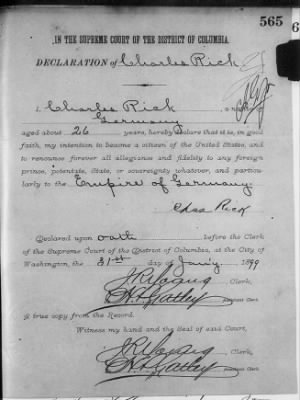 565
IN THE SUPREME COURT OF THE DISTRICT OF COLUMBIA.
DECLARATION of Charles Rick
I, Charles Rick, a
Germany
aged about 26 years, hereby declare that it is, in good
faith, my intention to become a citizen of the United States, and
to renounce forever all allegiance and fidelity to any foreign
prince, potentate, State, or sovereignty whatever, and particu-
larly to the Empire of Germany.
Chas Rick
Declared upon oath before the Clerk
of the Supreme Court of the District of Columbia, at the City of
Washington, the 31st day of Jan'y, 1899
J.R. Young, Clerk,
Assistant Clerk
A true copy from the Record.
Witness my hand and the Seal of said Court,
J.R. Young, Clerk,
Assistant Clerk